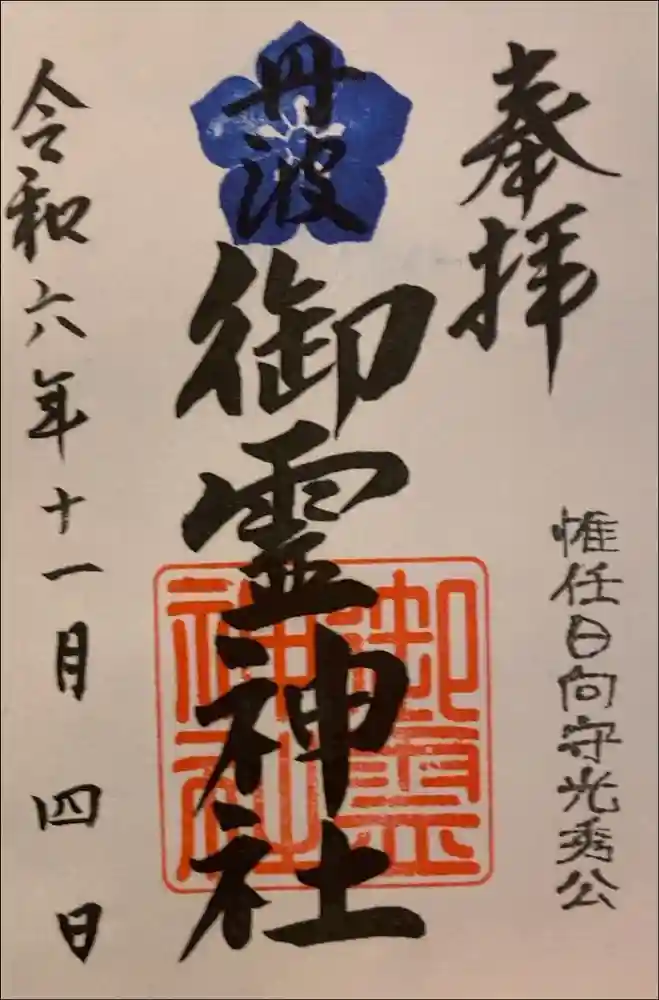 奉拝
惟任日向守光秀公
丹波
御霊神社
御霊神社
令和六年十一月四日